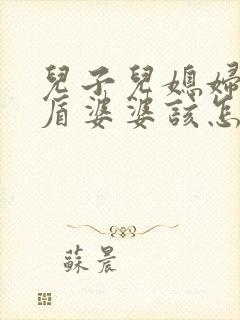 兒子兒媳婦
盾婆婆該怎
蘇晨